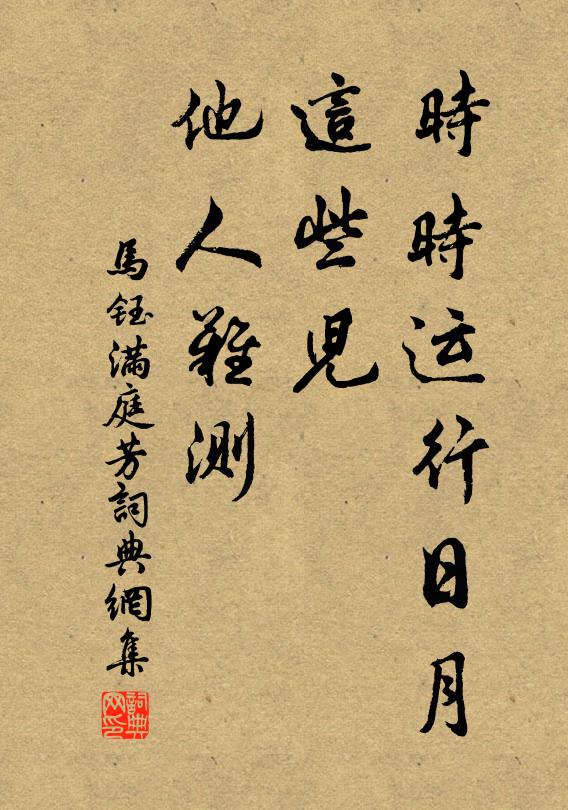 時時运行日月
這些児
他人難測
馬鈺滿庭芳詞典網集
詞典网印